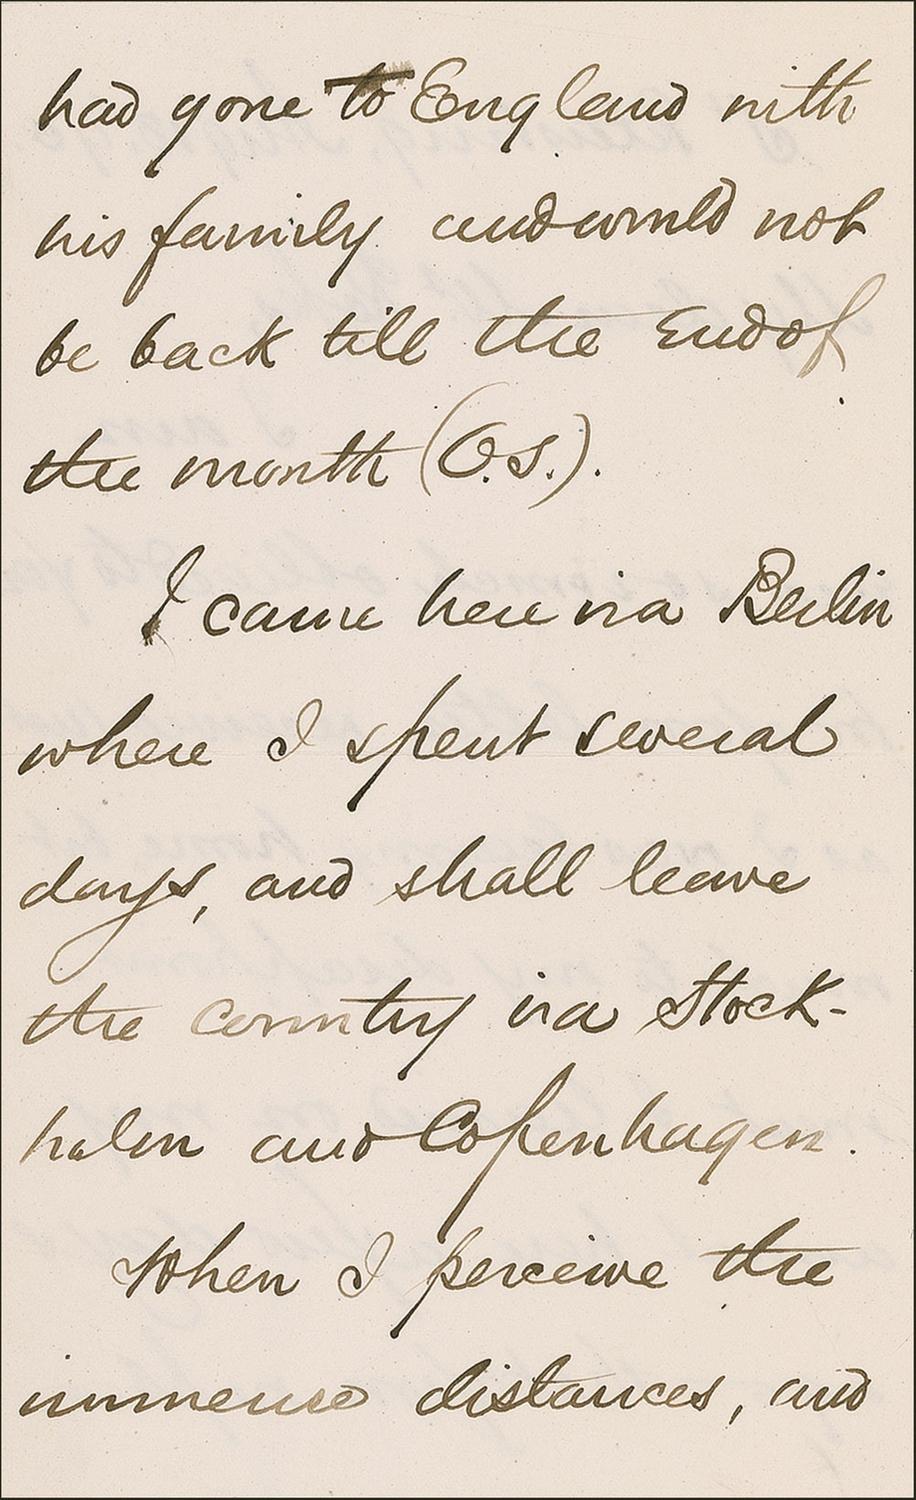 had gone to England with
his family and would not
be back till the End of
the month (O.S.).
I came here via Berlin
where I spent several
days, and shall leave
the country via Stock-
holm and Copenhagen.
When I perceive the
immense distances, and